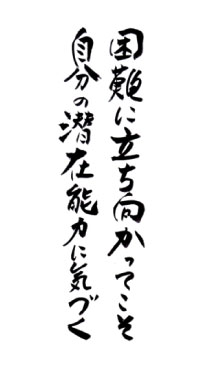 困難に立ち向かってこそ
自分の潜在能力に気づく